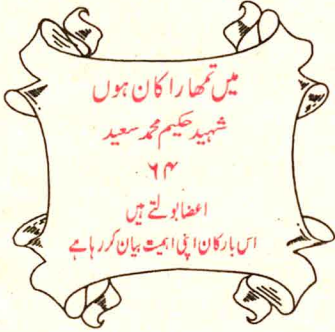 میں تمھارا کان ہوں
شہید حکیم محمد سعید
۶۴
اعضا بولتے ہیں
اس بار کان اپنی اہمیت بیان کر رہا ہے